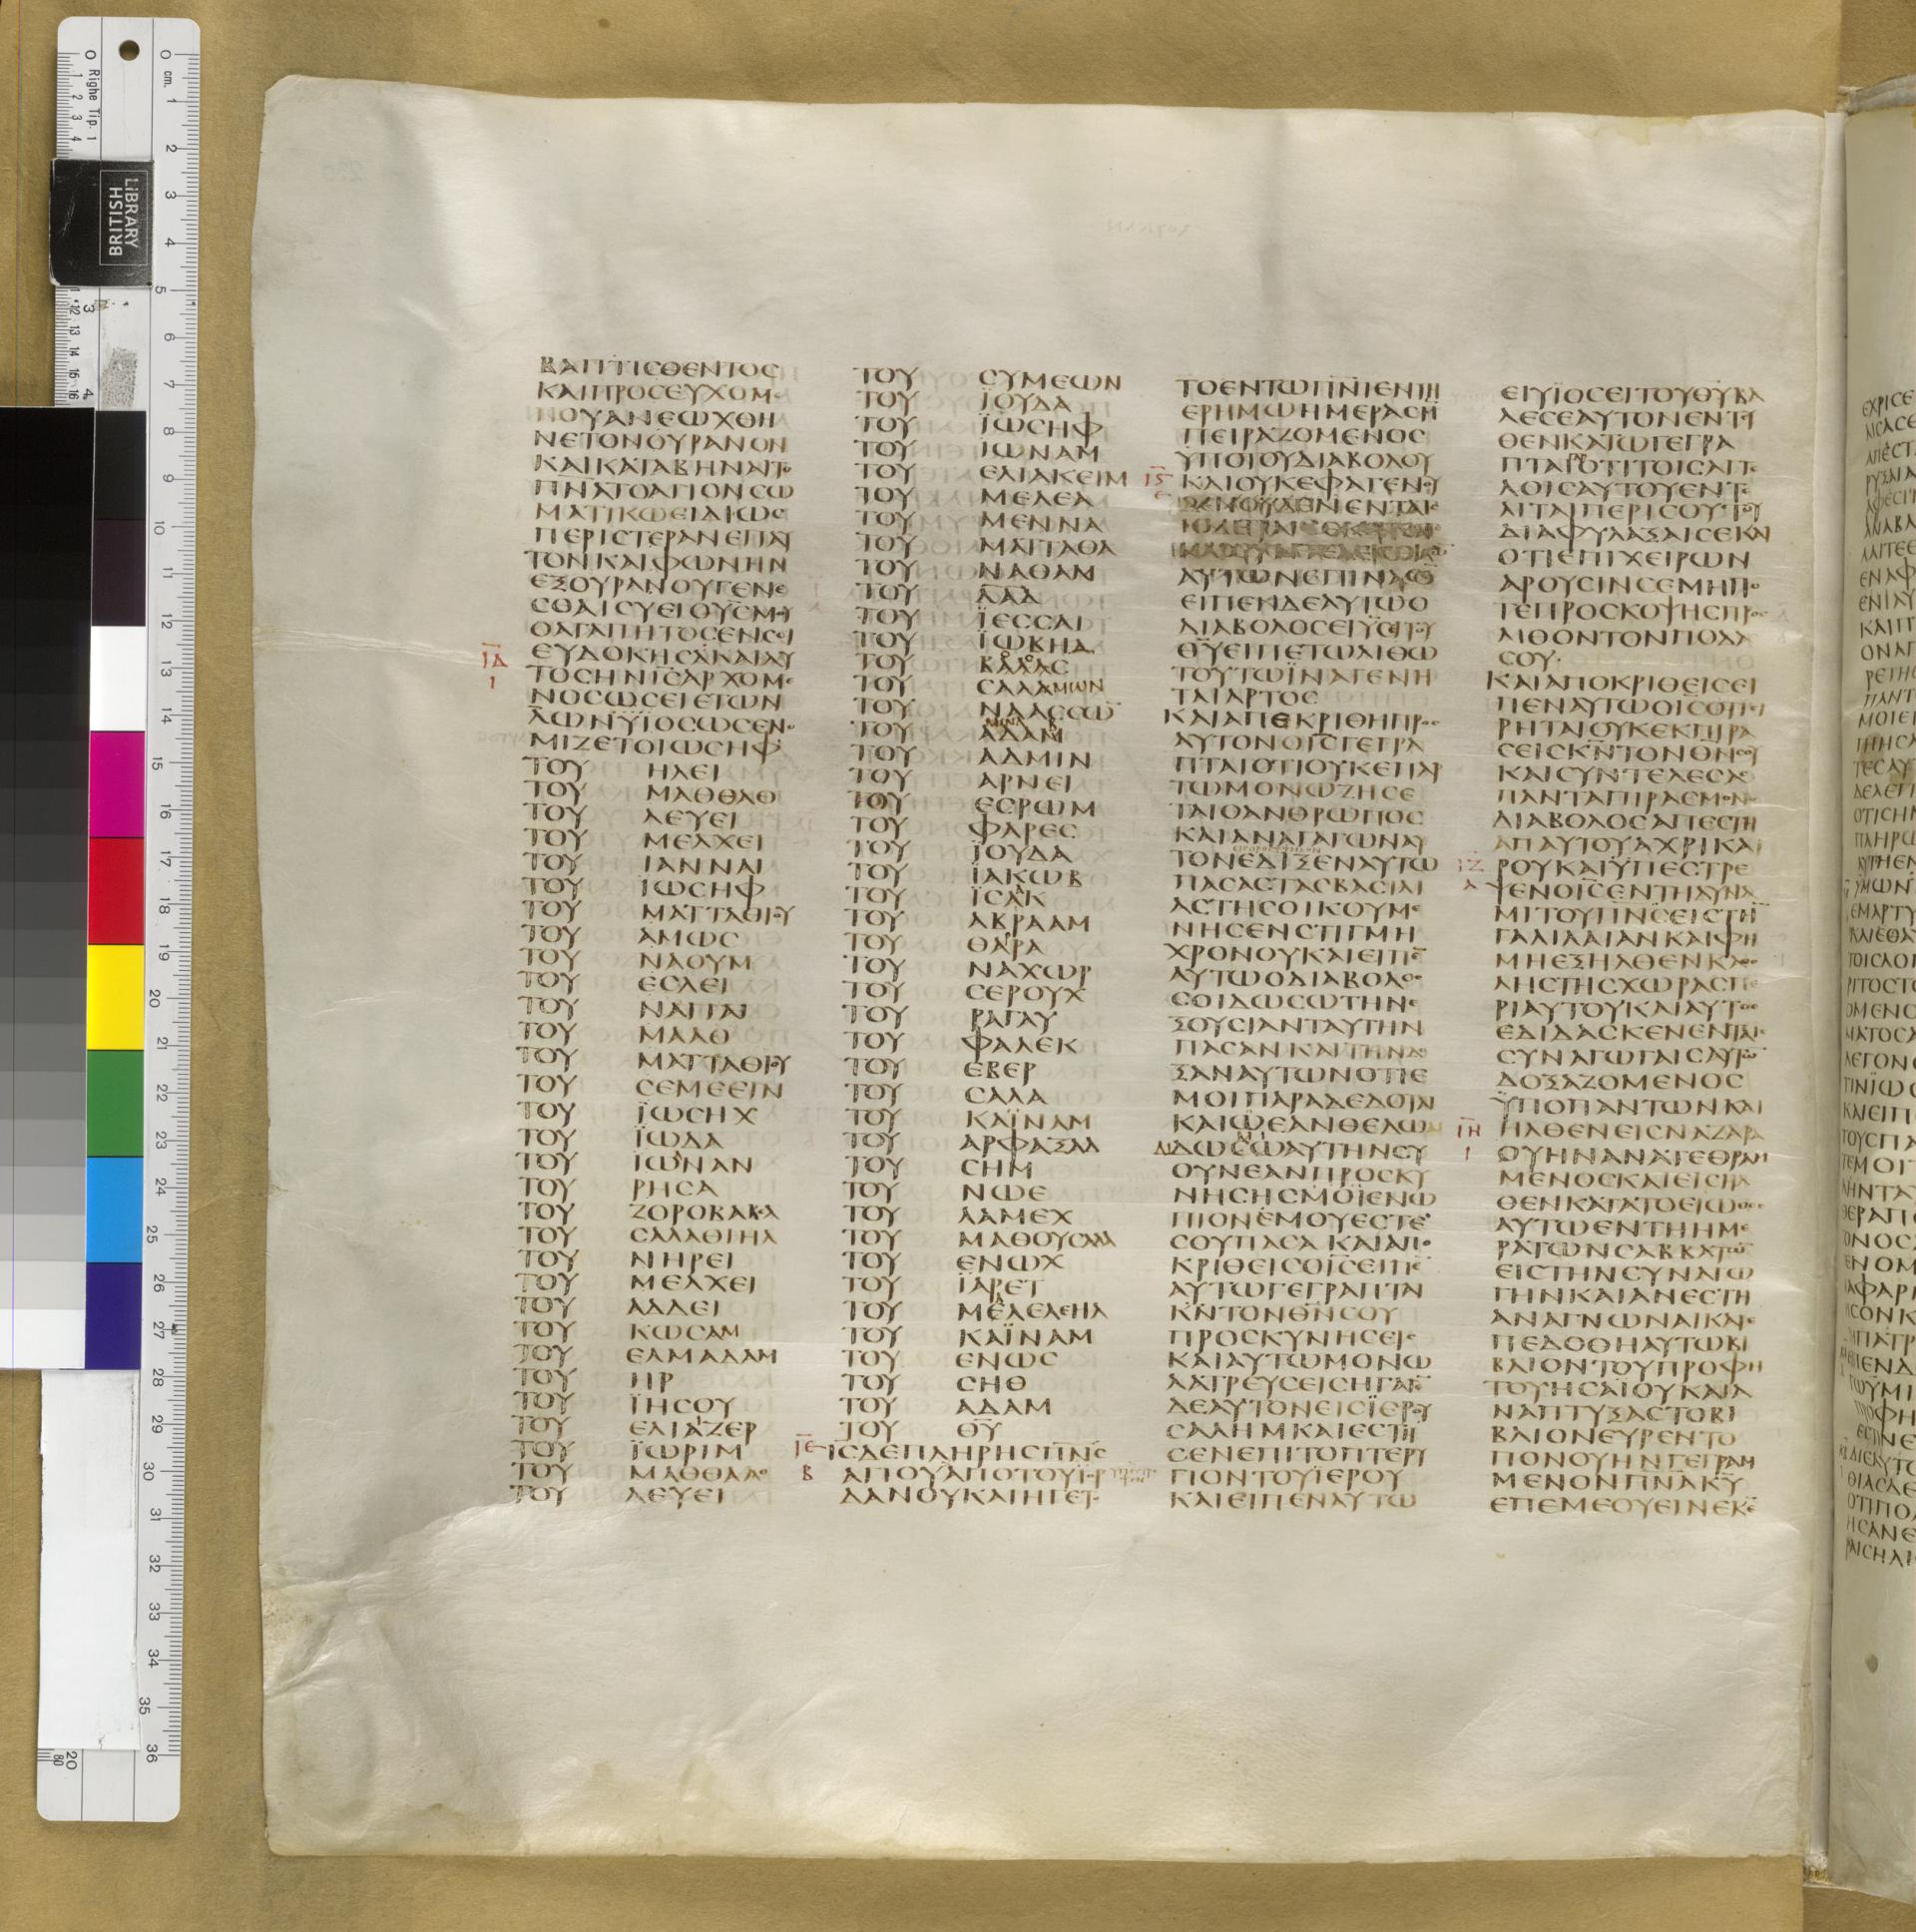 ΒΑΠΤΙCΘΕΝΤΟC
ΚΑΙΠΡΟCΕΥΧΟΜΕ
ΝΟΥΑΝΕΩΧΘΗ
ΝΕΤΟΝΟΥΡΑΝΟΝ
ΚΑΙΚΑΤΑΒΗΝΑΙΤΟ
ΠΝΑΤΟΑΓΙΟΝCΩ
ΜΑΤΙΚΩΕΙΔΙΩC
ΠΕΡΙCΤΕΡΑΝΕΠΑΥ
ΤΟΝΚΑΙΦΩΝΗΝ
ΕΞΟΥΡΑΝΟΥΓΕΝΕ
CΘΑΙCΥΕΙΟΥCΜΟΥ
ΟΑΓΑΠΗΤΟCΕΝCΟΙ
ΙΔ ΕΥΔΟΚΗCΑΚΑΙΑΥ
Ι ΤΟCΗΝΙCΑΡΧΟΜΕ
ΝΟCΩCΕΙΕΤΩΝ
Λ̅ΩΝΫΪΟCΩCΕΝΟ
ΜΙΖΕΤΟΙΩCΗΦ
ΤΟΥ ΗΛΕΙ
ΤΟΥ ΜΑΘΘΑΘ
ΤΟΥ ΛΕΥΕΙ
ΤΟΥ ΜΕΛΧΕΙ
ΤΟΥ ΙΑΝΝΑΙ
ΤΟΥ ΙΩCΗΦ
ΤΟΥ ΜΑΤΤΑΘΙΟΥ
ΤΟΥ ΑΜΩC
ΤΟΥ ΝΑΟΥΜ
ΤΟΥ ΕCΛΕΙ
ΤΟΥ ΝΑΓΓΑΙ
ΤΟΥ ΜΑΑΘ
ΤΟΥ ΜΑΤΤΑΘΙΟΥ
ΤΟΥ CΕΜΕΕΙΝ
ΤΟΥ ΪΩCΗΧ
ΤΟΥ ΪΩΔΑ
ΤΟΥ ΙΩΝΑΝ
ΤΟΥ ΡΗCΑ
ΤΟΥ ΖΟΡΟΒΑΒΕΛ
ΤΟΥ CΑΛΑΘΙΗΛ
ΤΟΥ ΝΗΡΕΙ
ΤΟΥ ΜΕΛΧΕΙ
ΤΟΥ ΑΔΔΕΙ
ΤΟΥ ΚΩCΑΜ
ΤΟΥ ΕΛΜΑΔΑΜ
ΤΟΥ ΗΡ
ΤΟΥ ΪΗCΟΥ
ΤΟΥ ΕΛΙΑΖΕΡ
ΤΟΥ ΪΩΡΙΜ
ΤΟΥ ΜΑΘΘΑΑΘ
ΤΟΥ ΛΕΥΕΙ
ΤΟΥ CΥΜΕΩΝ
ΤΟΥ ΪΟΥΔΑ
ΤΟΥ ΪΩCΗΦ
ΤΟΥ ΙΩΝΑΜ
ΤΟΥ ΕΛΙΑΚΕΙΜ
ΤΟΥ ΜΕΛΕΑ
ΤΟΥ ΜΕΝΝΑ
ΤΟΥ ΜΑΤΤΑΘΑ
ΤΟΥ ΝΑΘΑΜ
ΤΟΥ ΔΑΔ
ΤΟΥ ΪΕCCΑΙ
ΤΟΥ ΪΩΒΗΔ
ΤΟΥ ΒΑΛΛC
ΤΟΥ CΑΛΑΜΩΝ
ΤΟΥ ΝΑΑCCΩ
ΤΟΥ ΑΔΑΜ
ΤΟΥ ΑΔΜΙΝ
ΤΟΥ ΑΡΝΕΙ
ΤΟΥ ΕCΡΩΜ
ΤΟΥ ΦΑΡΕC
ΤΟΥ ΪΟΥΔΑ
ΤΟΥ ΪΑΚΩΒ
ΤΟΥ ΪCΑΚ
ΤΟΥ ΑΒΡΑΑΜ
ΤΟΥ ΘΑΡΑ
ΤΟΥ ΝΑΧΩΡ
ΤΟΥ CΕΡΟΥΧ
ΤΟΥ ΡΑΓΑΥ
ΤΟΥ ΦΑΛΕΚ
ΤΟΥ ΕΒΕΡ
ΤΟΥ CΑΛΑ
ΤΟΥ ΚΑΪΝΑΜ
ΤΟΥ ΑΡΦΑΞΑΔ
ΤΟΥ CΗΜ
ΤΟΥ ΝΩΕ
ΤΟΥ ΛΑΜΕΧ
ΤΟΥ ΜΑΘΟΥCΑΛΑ
ΤΟΥ ΕΝΩΧ
ΤΟΥ ΪΑΡΕΤ
ΤΟΥ ΜΕΛΕΛΕΗΛ
ΤΟΥ ΚΑΪΝΑΜ
ΤΟΥ ΕΝΩC
ΤΟΥ CΗΘ
ΤΟΥ ΑΔΑΜ
ΤΟΥ Θ̅Υ̅
ΙΕ ΙCΔΕΠΛΗΡΗCΠΝC
Β ΑΓΙΟΥΑΠΟΤΟΥΪΟΡ
ΔΑΝΟΥΚΑΙΗΓΕΤΟ
ΤΟΕΝΤΩΠΝΙΕΝΤΗ
ΕΡΗΜΩΗΜΕΡΑCΜ
ΠΕΙΡΑΖΟΜΕΝΟC
ΥΠΟΤΟΥΔΙΑΒΟΛΟΥ
ΙϚ ΚΑΙΟΥΚΕΦΑΓΕΝΟΥ
Ε ΔΕΝΟΥΔΕΝΕΝΤΑΙC
ΑΥΤΩΝΕΠΙΝΑCΕ
ΕΙΠΕΝΔΕΑΥΤΩΟ
ΔΙΑΒΟΛΟCΕΙΫCΤΟΥ
ΘΥΕΙΠΕΤΩΛΙΘΩ
ΤΟΥΤΩΪΝΑΓΕΝΗ
ΤΑΙΑΡΤΟC
ΚΑΙΑΠΕΚΡΙΘΗΠΡΟC
ΑΥΤΟΝΟΙCΓΕΓΡΑ
ΠΤΑΙΟΤΙΟΥΚΕΠΑΡ
ΤΩΜΟΝΩΖΗCΕ
ΤΑΙΟΑΝΘΡΩΠΟC
ΚΑΙΑΝΑΓΑΓΩΝΑΥ
ΤΟΝΕΔΙΞΕΝΑΥΤΩ
ΠΑCΑCΤΑCΒΑCΙΛΙ
ΑCΤΗCΟΙΚΟΥΜΕ
ΝΗCΕΝCΤΙΓΜΗ
ΧΡΟΝΟΥΚΑΙΕΙΠΕ
ΑΥΤΩΟΔΙΑΒΟΛΟC
CΟΙΔΩCΩΤΗΝΕ
ΞΟΥCΙΑΝΤΑΥΤΗΝ
ΠΑCΑΝΚΑΙΤΗΝΔΟ
ΞΑΝΑΥΤΩΝΟΤΙΕ
ΜΟΙΠΑΡΑΔΕΔΟΤΑΙ
ΚΑΙΩΕΑΝΘΕΛΩ
ΔΙΔΩCΩΑΥΤΗΝCΥ
ΟΥΝΕΑΝΠΡΟCΚΥ
ΝΗCΗCΜΟΪΕΝΩ
ΠΙΟΝΕΜΟΥΕCΤΕ
CΟΥΠΑCΑΚΑΙΑΠΟ
ΚΡΙΘΕΙCΟΙCΕΙΠΕ
ΑΥΤΩΓΕΓΡΑΠΤΑΙ
ΚΝΤΟΝΘΝCΟΥ
ΠΡΟCΚΥΝΗCΕΙC
ΚΑΙΑΥΤΩΜΟΝΩ
ΛΑΤΡΕΥCΕΙCΗΓΑΓΕ
ΔΕΑΥΤΟΝΕΙCΪΕΡΟΥ
CΑΛΗΜΚΑΙΕCΤΗ
CΕΝΕΠΙΤΟΠΤΕΡΥ
ΓΙΟΝΤΟΥΪΕΡΟΥ
ΚΑΙΕΙΠΕΝΑΥΤΩ
ΕΙΥΪΟCΕΙΤΟΥΘΥΒΑ
ΛΕCΕΑΥΤΟΝΕΝΤΕΥ
ΘΕΝΚΑΤΩΓΕΓΡΑ
ΠΤΑΙΟΤΙΤΟΙCΑΓΓΕ
ΛΟΙCΑΥΤΟΥΕΝΤΕ
ΛΙΤΑΙΠΕΡΙCΟΥΤΟΥ
ΔΙΑΦΥΛΑΞΑΙCΕΚΑΙ
ΟΤΙΕΠΙΧΕΙΡΩΝ
ΑΡΟΥCΙΝCΕΜΗΠΟ
ΤΕΠΡΟCΚΟΨΗCΠΡΟC
ΛΙΘΟΝΤΟΝΠΟΔΑ
CΟΥ
ΚΑΙΑΠΟΚΡΙΘΕΙCΕΙ
ΠΕΝΑΥΤΩΟΙCΟΤΙΕΙ
ΡΗΤΑΙΟΥΚΕΚΠΙΡΑ
CΕΙCΚΝΤΟΝΘΝCΟΥ
ΚΑΙCΥΝΤΕΛΕCΑC
ΠΑΝΤΑΠΙΡΑCΜΟΝΟ
ΔΙΑΒΟΛΟCΑΠΕCΤΗ
ΑΠΑΥΤΟΥΑΧΡΙΚΑΙ
ΙΖ ΡΟΥΚΑΙΫΠΕCΤΡΕ
Α ΨΕΝΟΙCΕΝΤΗΔΥΝΑ
ΜΙΤΟΥΠΝCΕΙCΤΗ
ΓΑΛΙΛΑΙΑΝΚΑΙΦΗ
ΜΗΕΞΗΛΘΕΝΚΑΘΟ
ΛΗCΤΗCΧΩΡΑCΠΕ
ΡΙΑΥΤΟΥΚΑΙΑΥΤΟC
ΕΔΙΔΑCΚΕΝΕΝΤΑΙC
CΥΝΑΓΩΓΑΙCΑΥΤΩ
ΔΟΞΑΖΟΜΕΝΟC
ΫΠΟΠΑΝΤΩΝΚΑΙ
ΙΗ ΗΛΘΕΝΕΙCΝΑΖΑΡΑ
Ι ΟΥΗΝΑΝΑΤΕΘΡΑΜ
ΜΕΝΟCΚΑΙΕΙCΗΛ
ΘΕΝΚΑΤΑΤΟΕΙΩΘΟC
ΑΥΤΩΕΝΤΗΗΜΕ
ΡΑΤΩΝCΑΒΒΑΤΩ
ΕΙCΤΗΝCΥΝΑΓΩ
ΓΗΝΚΑΙΑΝΕCΤΗ
ΑΝΑΓΝΩΝΑΙΚΑΙΕ
ΠΕΔΟΘΗΑΥΤΩΒΙ
ΒΛΙΟΝΤΟΥΠΡΟΦΗ
ΤΟΥΗCΑΪΟΥΚΑΙΑ
ΝΑΠΤΥΞΑCΤΟΒΙ
ΒΛΙΟΝΕΥΡΕΝΤΟ
ΠΟΝΟΥΗΝΓΕΓΡΑΜ
ΜΕΝΟΝΠΝΑΚΥ
ΕΠΕΜΕΟΥΕΙΝΕΚΕ
LIBRARY
BRITISH
Righe Tip. 1
cm.